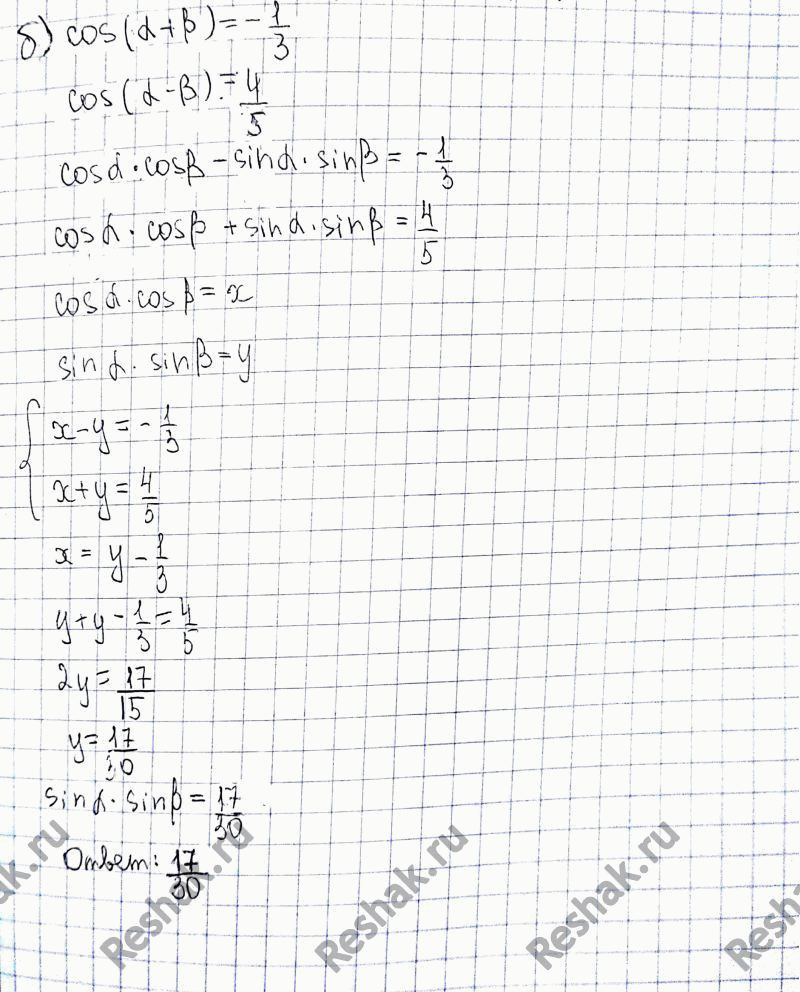 б) cos(α+β)=-1/3
cos(α-β)=4/5
cosα·cosβ-sinα·sinβ=-1/3
cosα·cosβ+sinα·sinβ=4/5
cosα·cosβ=x
sinα·sinβ=y
{x-y=-1/3
x+y=4/5
x=y-1/3
y+y-1/3=4/5
2y=17/15
y=17/30
sinα·sinβ=17/30
Ответ: 17/30
Reshak.ru
Reshak.ru
Reshak.ru